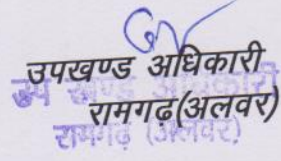 उपखण्ड अधिकारी
रामगढ़(अलवर)
उप खण्ड अधिकारी
रामगढ़ (अलवर)